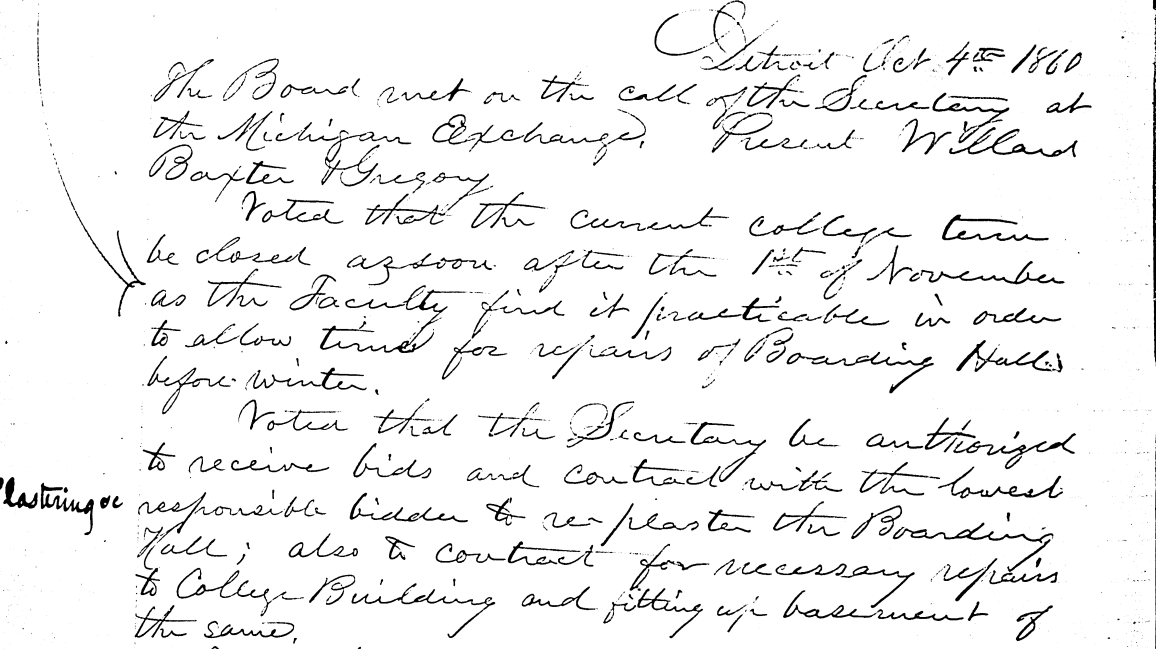 Detroit Oct 4th 1860
The Board met on the call of the Secretary at
the Michigan Exchange. Present Willard
Baxter & Gregory
Voted that the current college term
be closed as soon after the 1st of November
as the Faculty find it practicable in order
to allow time for repairs of Boarding Hall
before winter.
Voted that the Secretary be authorized
to receive bids and contract with the lowest
Plastering &c
responsible bidder to re-plaster the Boarding
Hall; also to contract for necessary repairs
to College Building and fitting up basement of
the same.